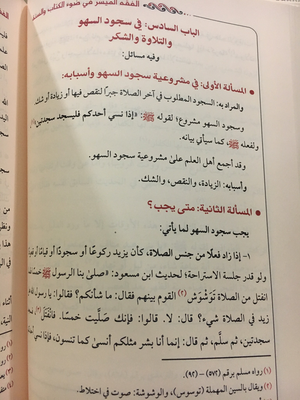 الفقه الميسر في ضوء الكتاب والسنة
الباب السادس: في سجود السهو
والتلاوة والشكر
وفيه مسائل:
• المسألة الأولى: في مشروعية سجود السهو وأسبابه:
والمراد به: السجود المطلوب في آخر الصلاة جبرًا لنقص فيها أو زيادة أو شك.
وسجود السهو مشروع؛ لقوله ﷺ: «إذا نسي أحدكم فليسجد سجدتين»(١)
ولفعله ﷺ كما سيأتي بيانه.
وقد أجمع أهل العلم على مشروعية سجود السهو.
وأسبابه: الزيادة، والنقص، والشك.
• المسألة الثانية: متى يجب؟
يجب سجود السهو لما يأتي:
١- إذا زاد فعلًا من جنس الصلاة، كأن يزيد ركوعًا أو سجودًا أو قيامًا أو قعودًا
ولو قدر جلسة الاستراحة؛ لحديث ابن مسعود: «صلى بنا الرسول ﷺ خمسًا
انفتل من الصلاة تَوَشْوَشَ (٢) القوم بينهم فقال: ما شأنكم؟ فقالوا: يا رسول الله
زيد في الصلاة شيء؟ قال: لا. قالوا: فإنك صليت خمسًا. فانفتل
سجدتين، ثم سلَّم، ثم قال: إنما أنا بشر مثلكم أنسى كما تنسون، فإذا نسي أحد
(١) رواه مسلم برقم (٥٧٢) - (٩٢).
(٢) ويقال بالسين المهملة (توسوس)، والوشوشة: صوت في اختلاط.